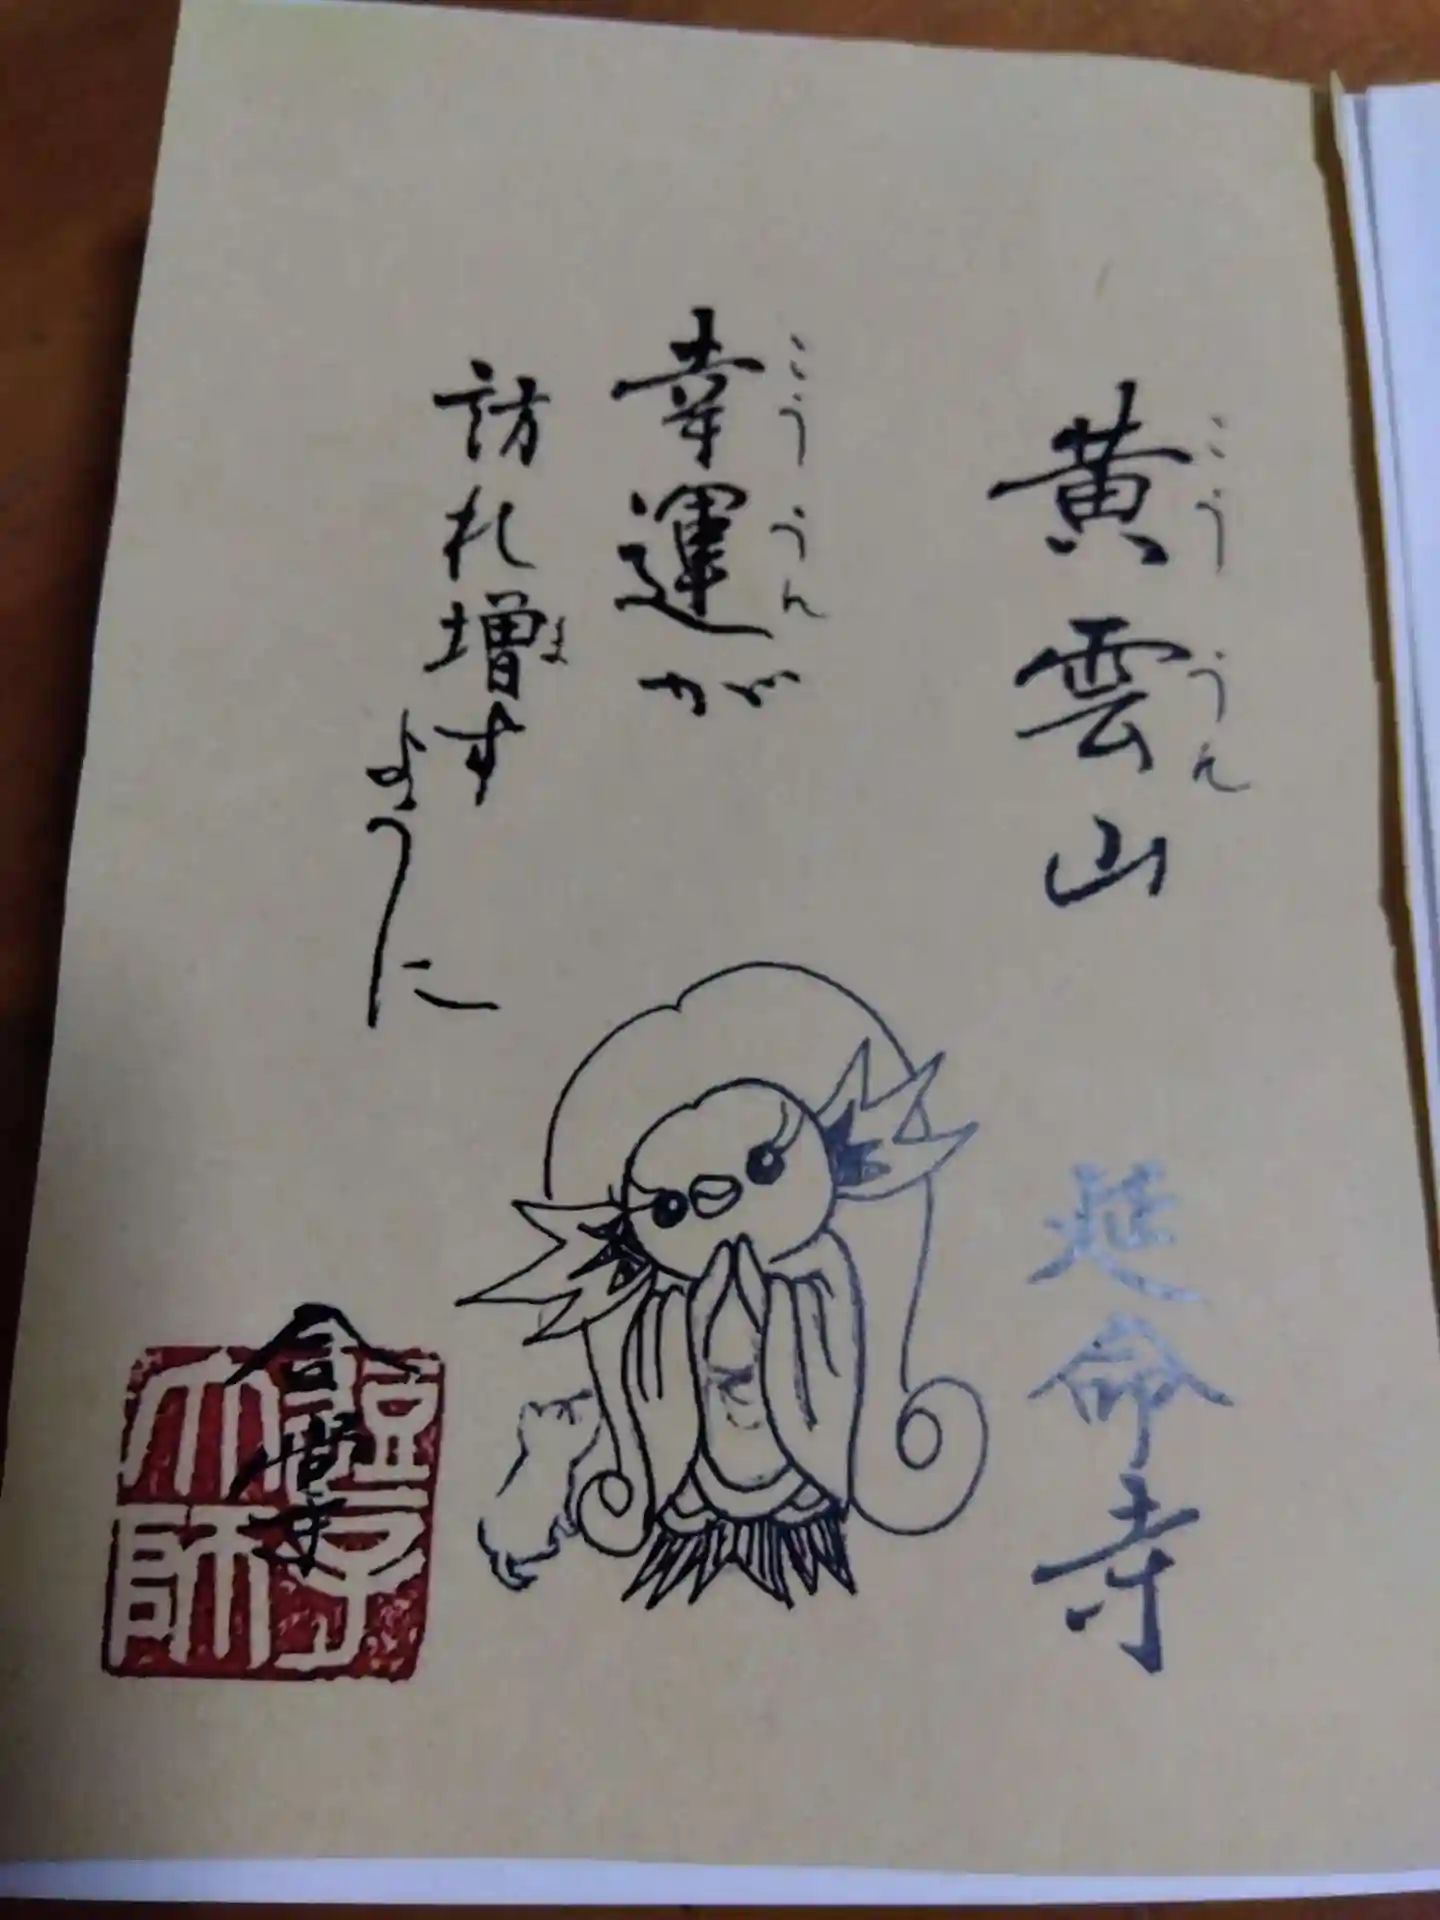 黄雲山
こううん
延命寺
幸運が
こううん
訪れ増す
ま
ように
大師